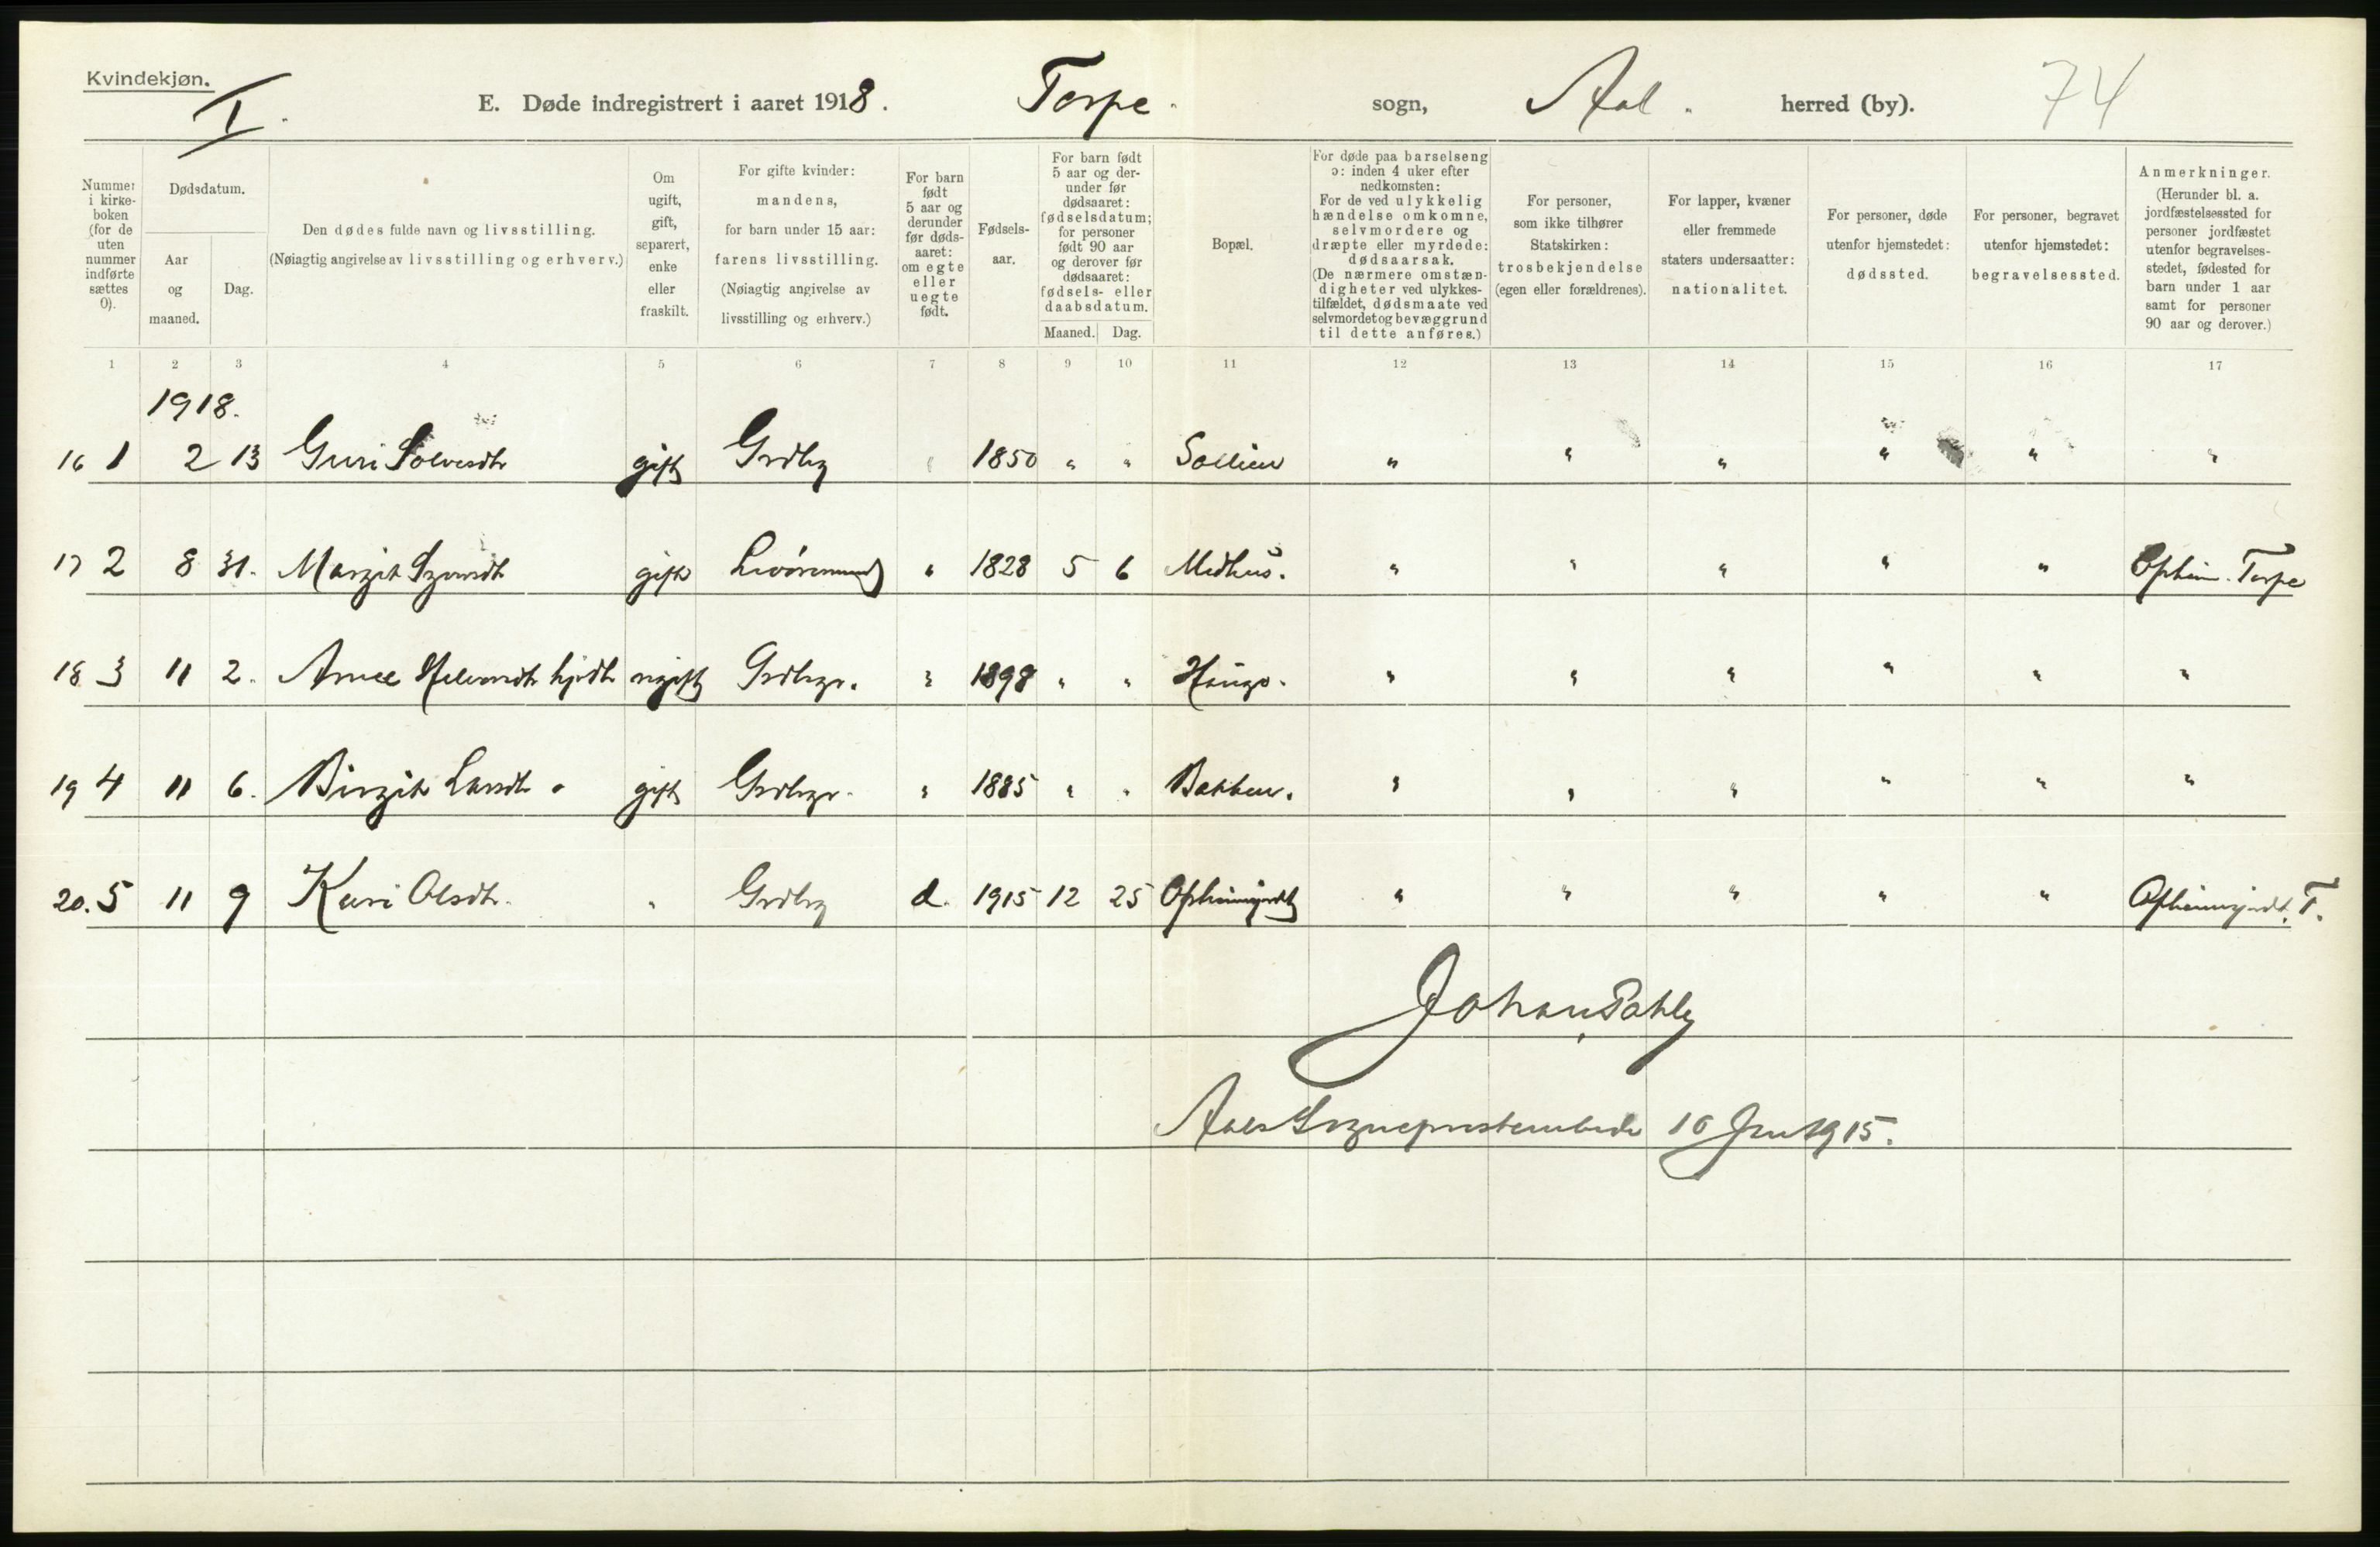 Kvindekjøn.
I.
E. Døde indregistrert i aaret 1918. Torpe. sogn, Aal. herred (by). 74
Nummer i kirkeboken (for de uten nummer indførte sættes 0).
Dødsdatum.
Aar og maaned.
Dag.
Den dødes fulde navn og livsstilling.
(Nøiagtig angivelse av livsstilling og erhverv.)
Om ugift, gift, separert, enke eller fraskilt.
For gifte kvinder: mandens, for barn under 15 aar: farens livsstilling. (Nøiagtig angivelse av livsstilling og erhverv.)
For barn født 5 aar og derunder før dødsaaret: om egte eller uegte født.
Fødselsaar.
For barn født 5 aar og derunder før dødsaaret: fødselsdatum; for personer født 90 aar og derover før dødsaaret: fødsels- eller daabsdatum.
Maaned. Dag.
Bopæl.
For døde paa barselseng ɔ: inden 4 uker efter nedkomsten: For de ved ulykkelig hændelse omkomne, selvmordere og dræpte eller myrdede: dødsaarsak. (De nærmere omstændigheter ved ulykkestilfældet, dødsmaate ved selvmordet og bevæggrund til dette anføres.)
For personer, som ikke tilhører Statskirken: trosbekjendelse (egen eller forældrenes).
For lapper, kvæner eller fremmede staters undersaatter: nationalitet.
For personer, døde utenfor hjemstedet: dødssted.
For personer, begravet utenfor hjemstedet: begravelsessted.
Anmerkninger. (Herunder bl. a. jordfæstelsessted for personer jordfæstet utenfor begravelsesstedet, fødested for barn under 1 aar samt for personer 90 aar og derover.)
1 2 3 4 5 6 7 8 9 10 11 12 13 14 15 16 17
1918.
16 1 2 13 Guri gift Grdbr " 1850 " " " " " " " "
17 2 8 31. Margit gift " 1828 5 6 Medhus. " " " " " Opheim. Torpe
18 3 11 2. ugift Grdbr. " 1898 " " " " " " " "
19 4 11 6. Birgit Larsdtr " gift Grdbr. " 1885 " " Bakken. " " " " " "
20. 5 11 9 Kari Olsdtr. " Grdbr d. 1915 12 25 " " " " " T.
Johan
Aals Sogneprestembede 16 Jan 1915.